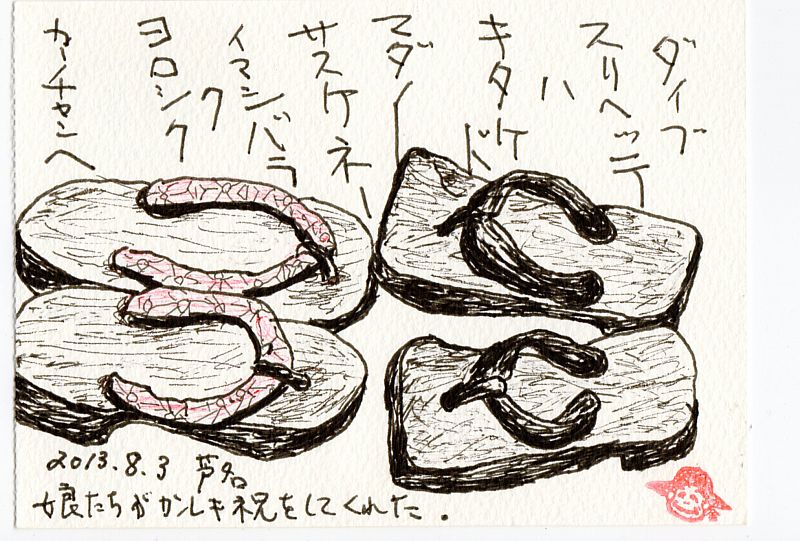 ダイブ
スリヘッテ
ハ
キタケド
マダー
サスケネー
イマシバラ
ク
ヨロシク
カーチャンヘ
2013.8.3 芦名
娘たちがカンレキ祝をしてくれた.